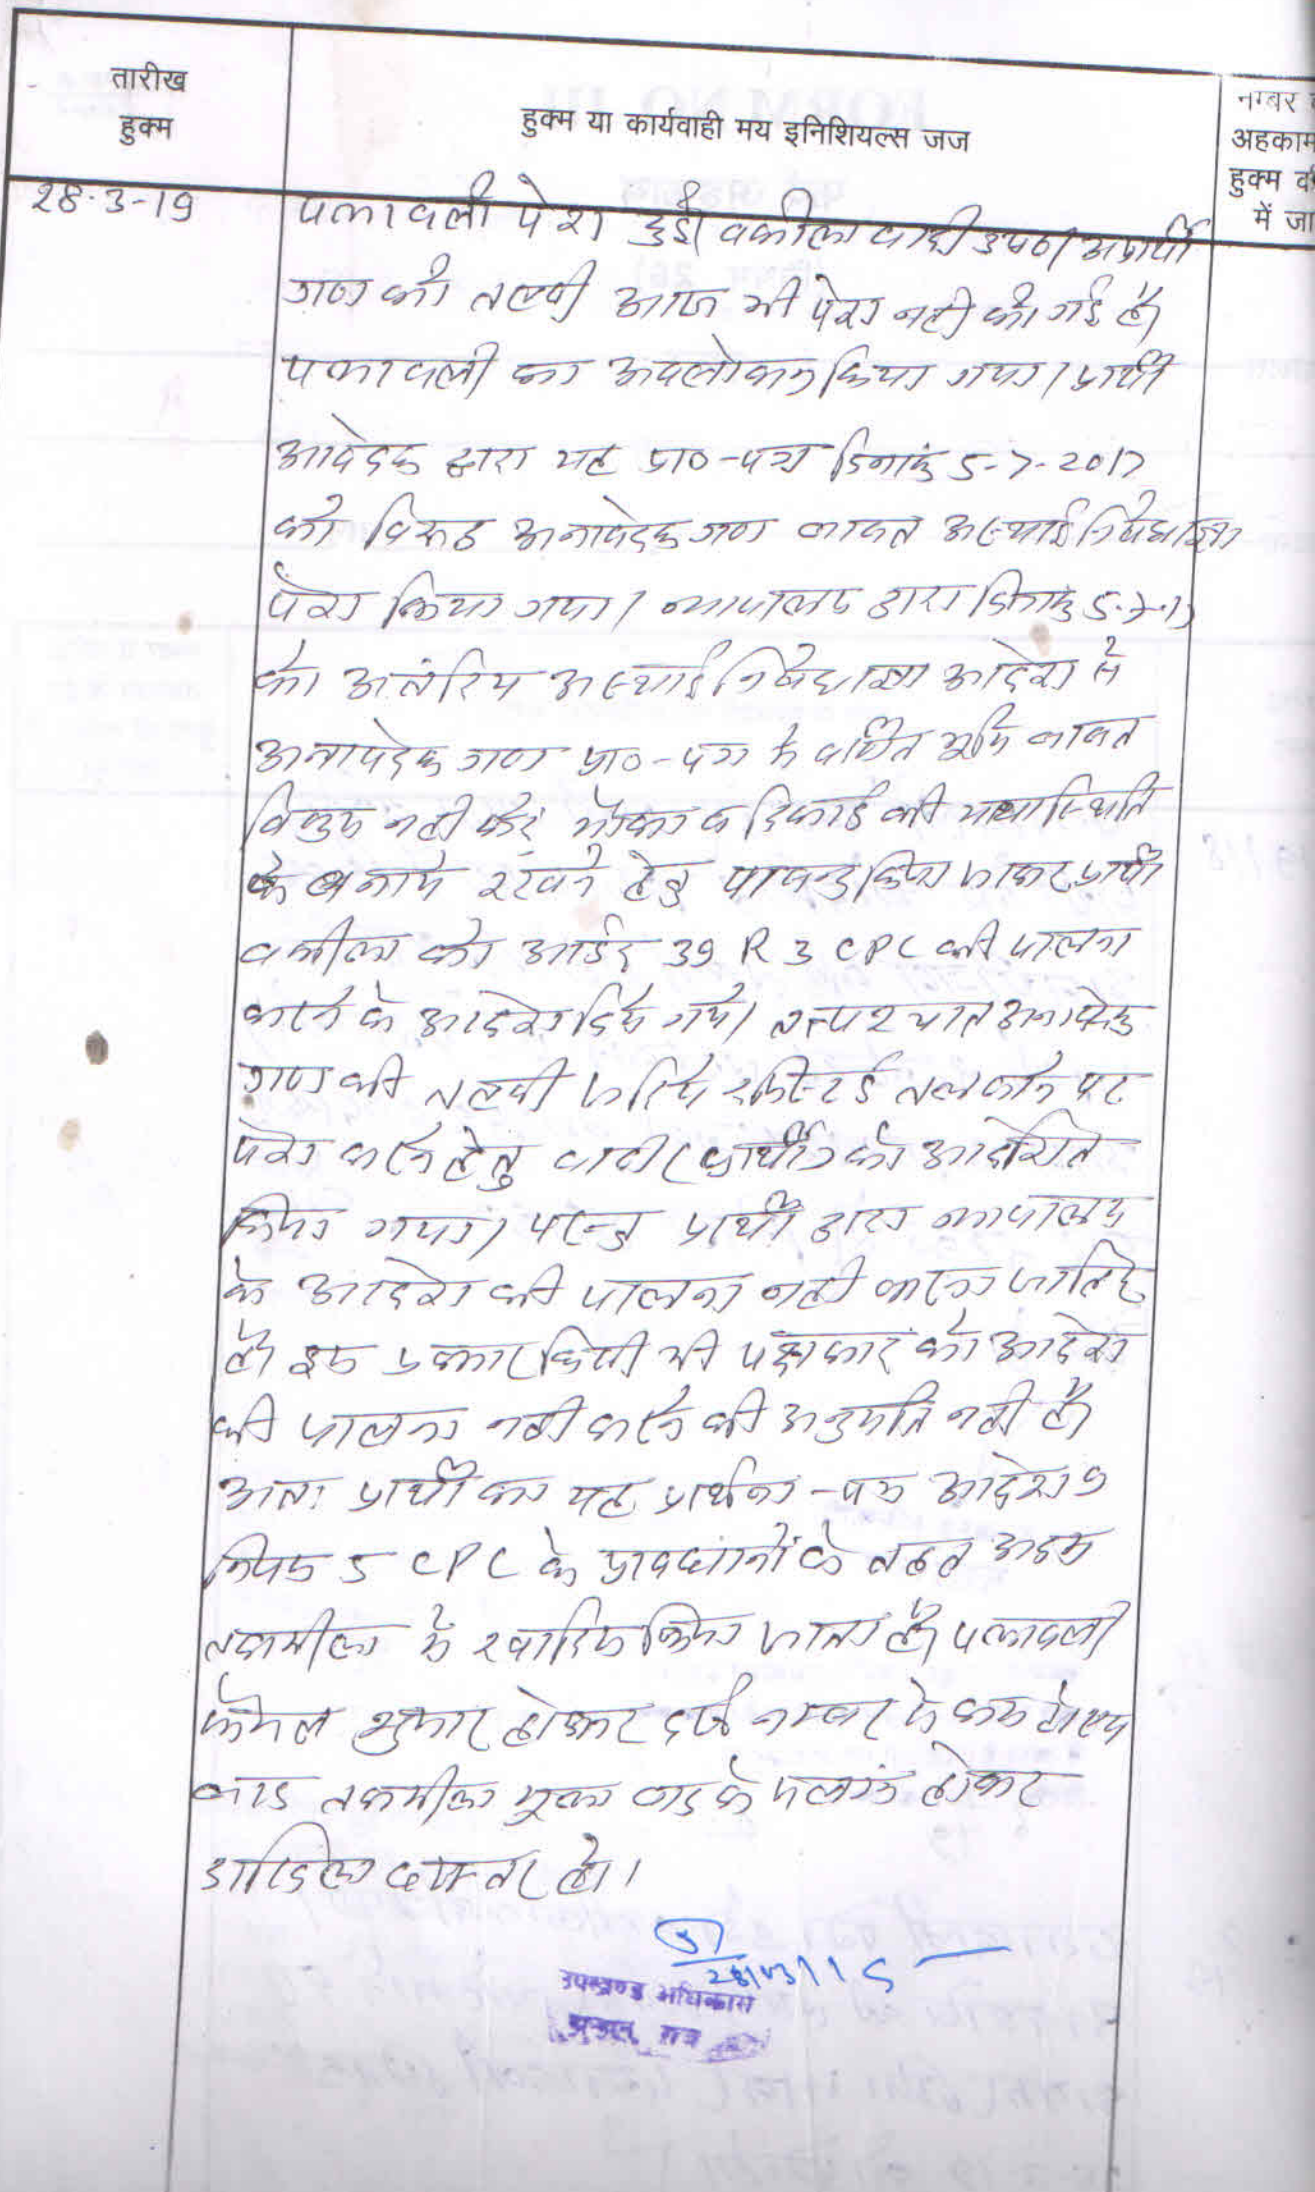 तारीख
हुक्म
हुक्म या कार्यवाही मय इनिशियल्स जज
नम्बर
अहकाम
हुक्म
में जा
28-3-19
पत्रावली पेश हुई। वकील वादी उप०। अप्रार्थी
गण की तलबी आज भी पेश नही की गई है।
पत्रावली का अवलोकन किया गया। प्रार्थी
आवेदक द्वारा यह प्रा०-पत्र दिनांक 5-7-2017
को विरूद्ध अनावेदकगण बाबत अस्थाई निषेधाज्ञा
पेश किया गया। न्यायालय द्वारा दिनांक 5-7-17
को अंतरिम अस्थाई निषेधाज्ञा आदेश से
अनावेदक गण प्रा०-पत्र मे वर्णित भूमि बाबत
विक्रय नही करें मौका व रिकार्ड की यथास्थिति
के बनाये रखने हेतु पाबन्द किया जाकर प्रार्थी
वकील को आर्डर 39 R 3 CPC की पालना
करने के आदेश दिये गये। तत्पश्चात अनावेदक
गण की तलबी जरिये रजिस्टर्ड तलबाने पर
पेश करने हेतु वादी/प्रार्थी को आदेशित
किया गया। परन्तु प्रार्थी द्वारा न्यायालय
के आदेश की पालना नही करना जाहिर
है। इस प्रकार किसी भी पक्षकार को आदेश
की पालना नही करने की अनुमति नही है।
अतः प्रार्थी का यह प्रार्थना-पत्र आदेश 9
नियम 5 CPC के प्रावधानों के तहत अदम
तकमील मे खारिज किया जाता है। पत्रावली
फैसल शुमार होकर दर्ज नम्बर से कम हो एवं
बाद तकमील मूल वाद के संलग्न होकर
दाखिल दफ्तर हो।
उपखण्ड अधिकारी